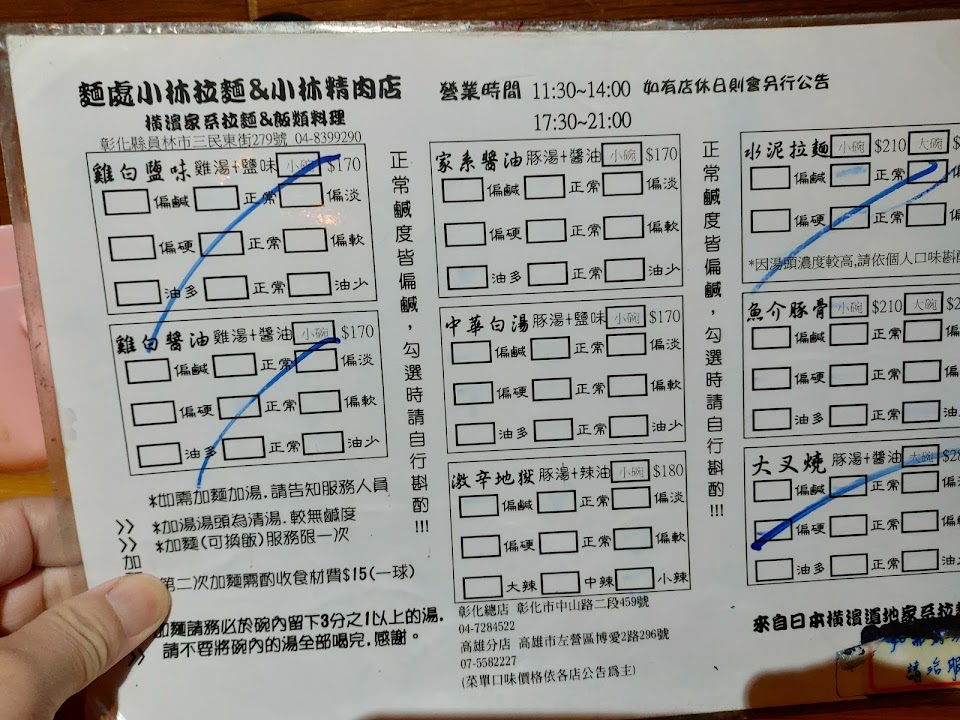 麵處小林拉麵&小林精肉店
橫濱家系拉麵&飯類料理
彰化縣員林市三民東街279號 04-8399290
營業時間 11:30~14:00 如有店休日則會另行公告
17:30~21:00
雞白鹽味 雞湯+鹽味 小碗 $170
偏鹹 正常 偏淡
偏硬 正常 偏軟
油多 正常 油少
雞白醬油 雞湯+醬油 小碗 $170
偏鹹 正常 偏淡
偏硬 正常 偏軟
油多 正常 油少
*如需加麵加湯,請告知服務人員
>> *加湯湯頭為清湯.較無鹹度
>> *加麵(可換飯)服務限一次
加
第二次加麵需酌收食材費$15(一球)
加麵請務必於碗內留下3分之1以上的湯.
>> 請不要將碗內的湯全部喝完.感謝。
正常鹹度皆偏鹹,勾選時請自行斟酌!!!
家系醬油 豚湯+醬油 小碗 $170
偏鹹 正常 偏淡
偏硬 正常 偏軟
油多 正常 油少
中華白湯 豚湯+鹽味 小碗 $170
偏鹹 正常 偏淡
偏硬 正常 偏軟
油多 正常 油少
激辛地獄 豚湯+辣油 小碗 $180
偏鹹 正常 偏淡
偏硬 正常 偏軟
大辣 中辣 小辣
彰化總店 彰化市中山路二段459號
04-7284522
高雄分店 高雄市左營區博愛2路296號
07-5582227
(菜單口味價格依各店公告為主)
正常鹹度皆偏鹹,勾選時請自行斟酌!!!
水泥拉麵 小碗 $210 大碗 $
偏鹹 正常 偏
偏硬 正常
*因湯頭濃度較高,請依個人口味斟
魚介豚骨 小碗 $210 大碗 $2
偏鹹 正常
偏硬 正常
油多 正常
大叉燒 豚湯+醬油 大碗 $28
偏鹹 正常
偏硬 正常
油多 正常
來自日本橫濱道地家系拉麵